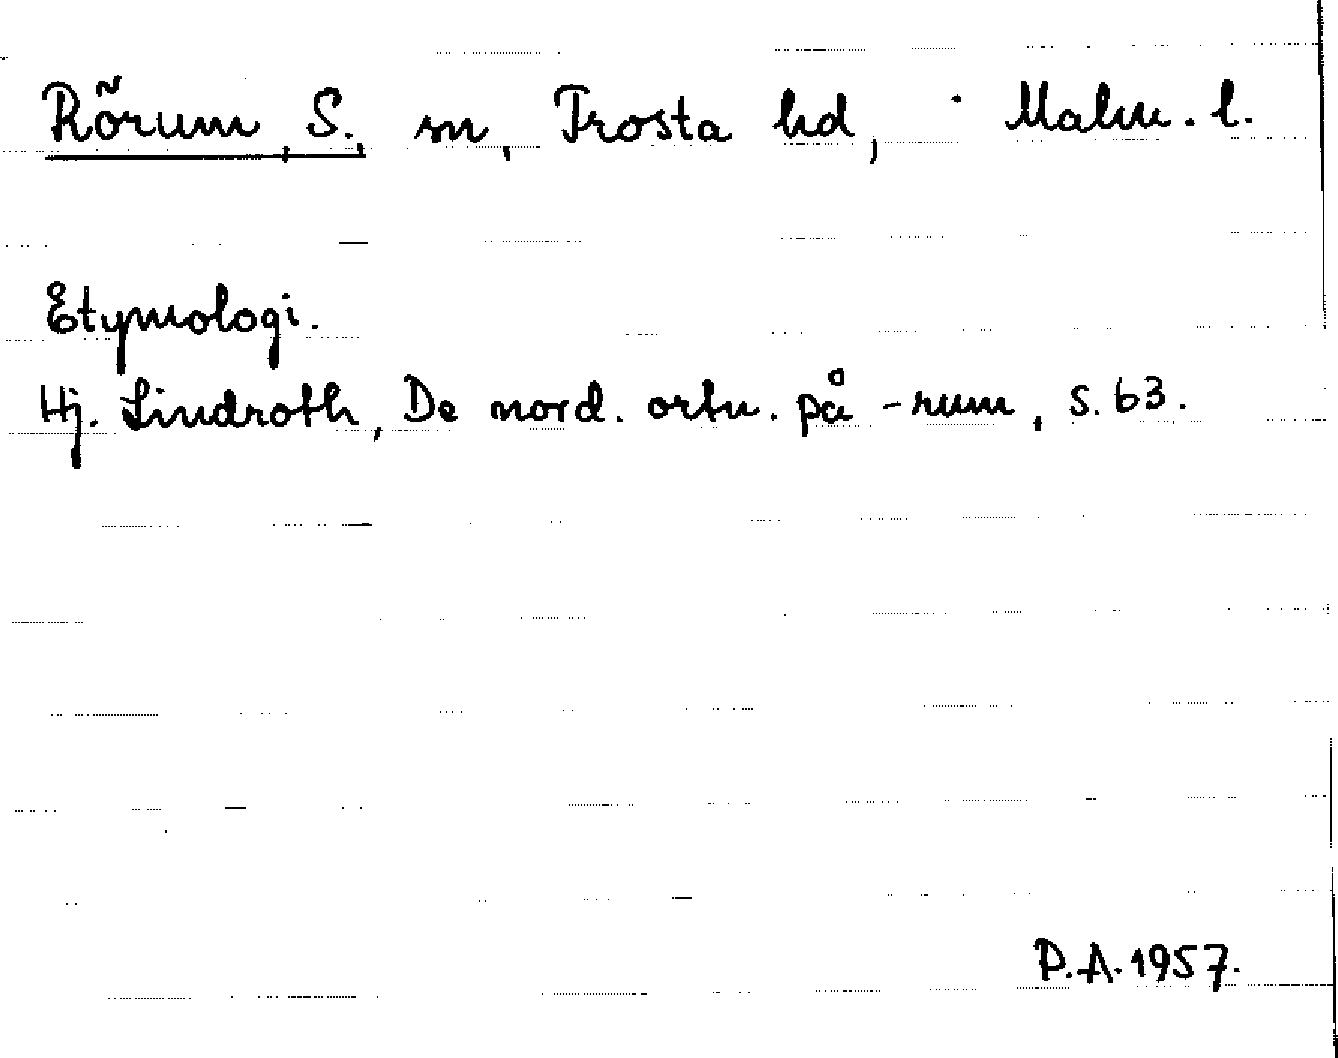 Rörum, S., sn, Frosta hd, Malm. l.
Etymologi.
Hj. Lindroth, De nord. ortn. på -rum, s. 63.
P.A. 1957.